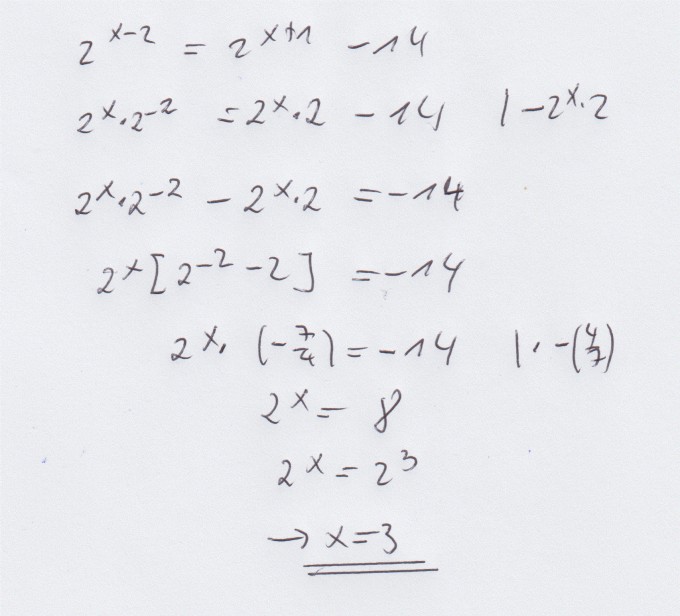 2^(x-2) = 2^(x+1) -14
2^x·2^-2 = 2^x·2 -14 | -2^x·2
2^x·2^-2 - 2^x·2 = -14
2^x[2^-2 -2] = -14
2^x·(-7/4) = -14 | ·-(4/7)
2^x = 8
2^x = 2^3
→ x=3